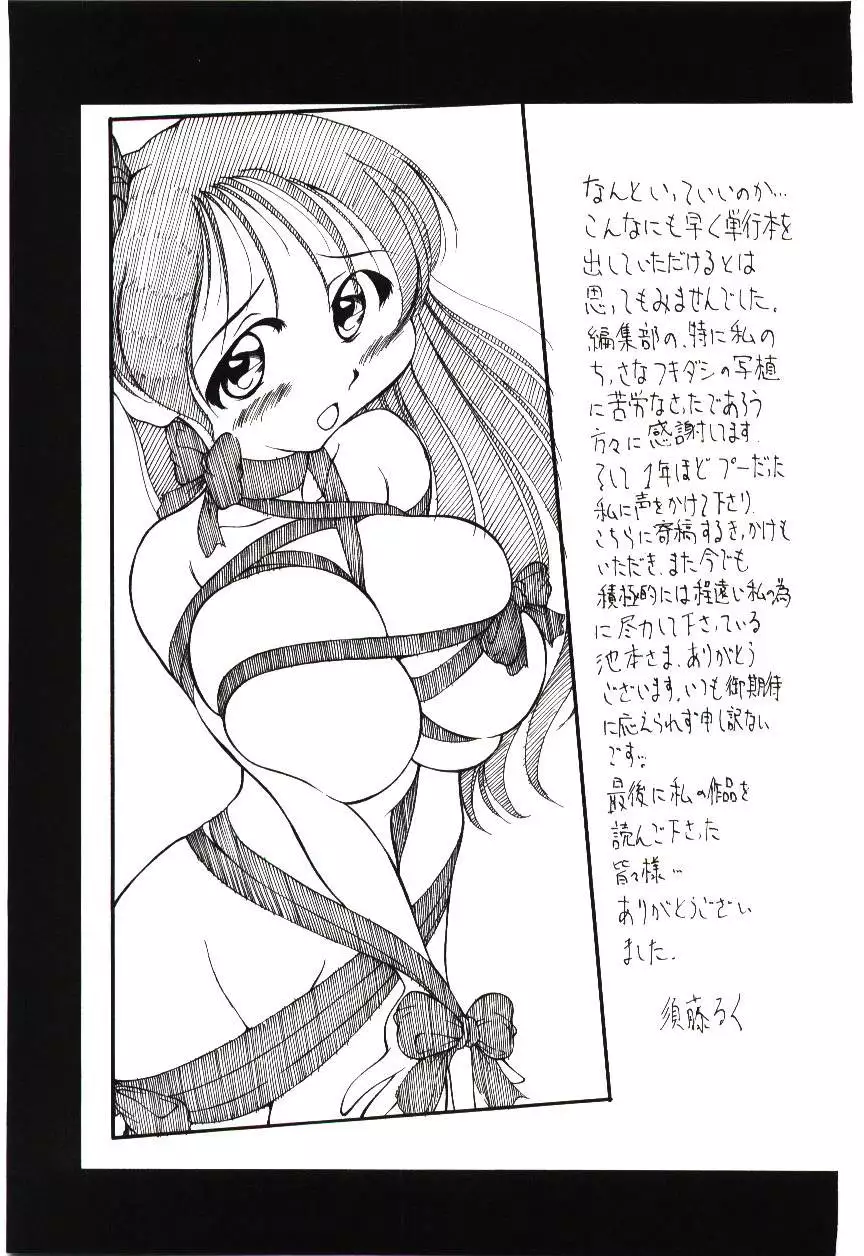 なんといっていいのか…
こんなにも早く単行本を
出していただけるとは
思ってもみませんでした。
編集部の、特に私の
ちっさなフキダシの写植
に苦労なさったであろう
方々に感謝してます.
そして1年ほどプーだった
私に声をかけて下さり、
こちらに寄稿するきっかけも
いただき、また今でも
積極的には程遠い私の為
に尽力して下さっている
池本さま、ありがとう
ございます。いつも御期待
に応えられず申し訳ない
です。
最後に私の作品を
読んで下さった
皆々様…
ありがとうござい
ました.
須藤るく